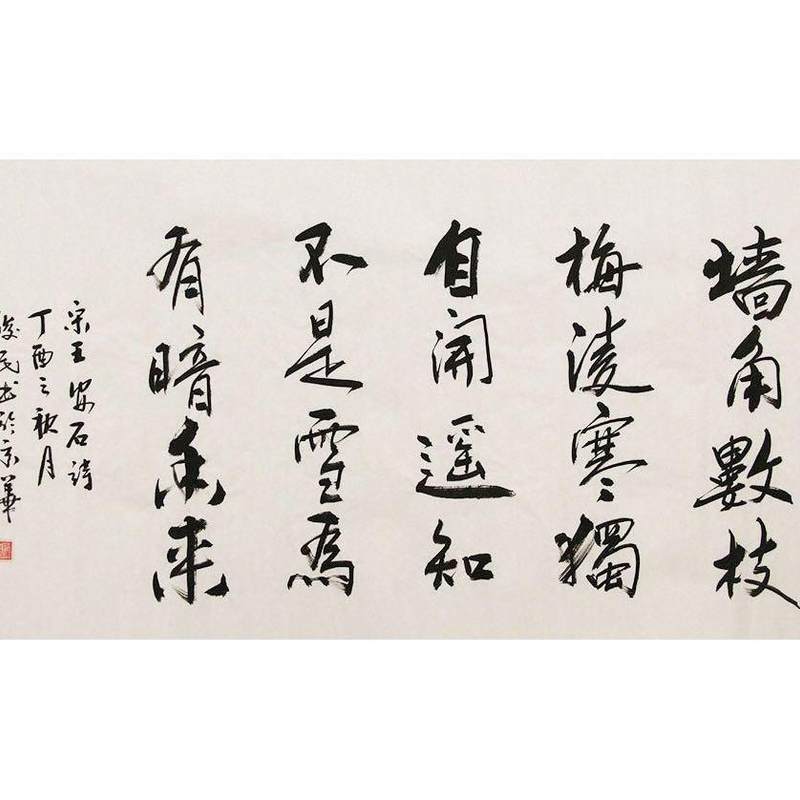 墙角數枝
梅凌寒獨
自開遥知
不是雪為
有暗香来
宋王安石詩
丁酉之秋月
俊民书於京華